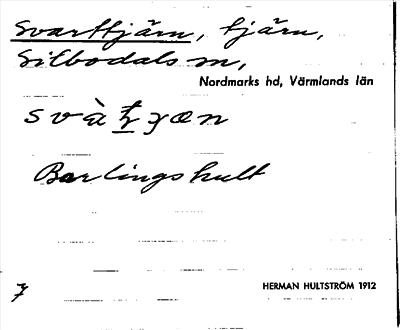 Svarttjärn, tjärn,
Silbodals sn,
Nordmarks hd, Värmlands län
Barlingshult
7 HERMAN HULTSTRÖM 1912